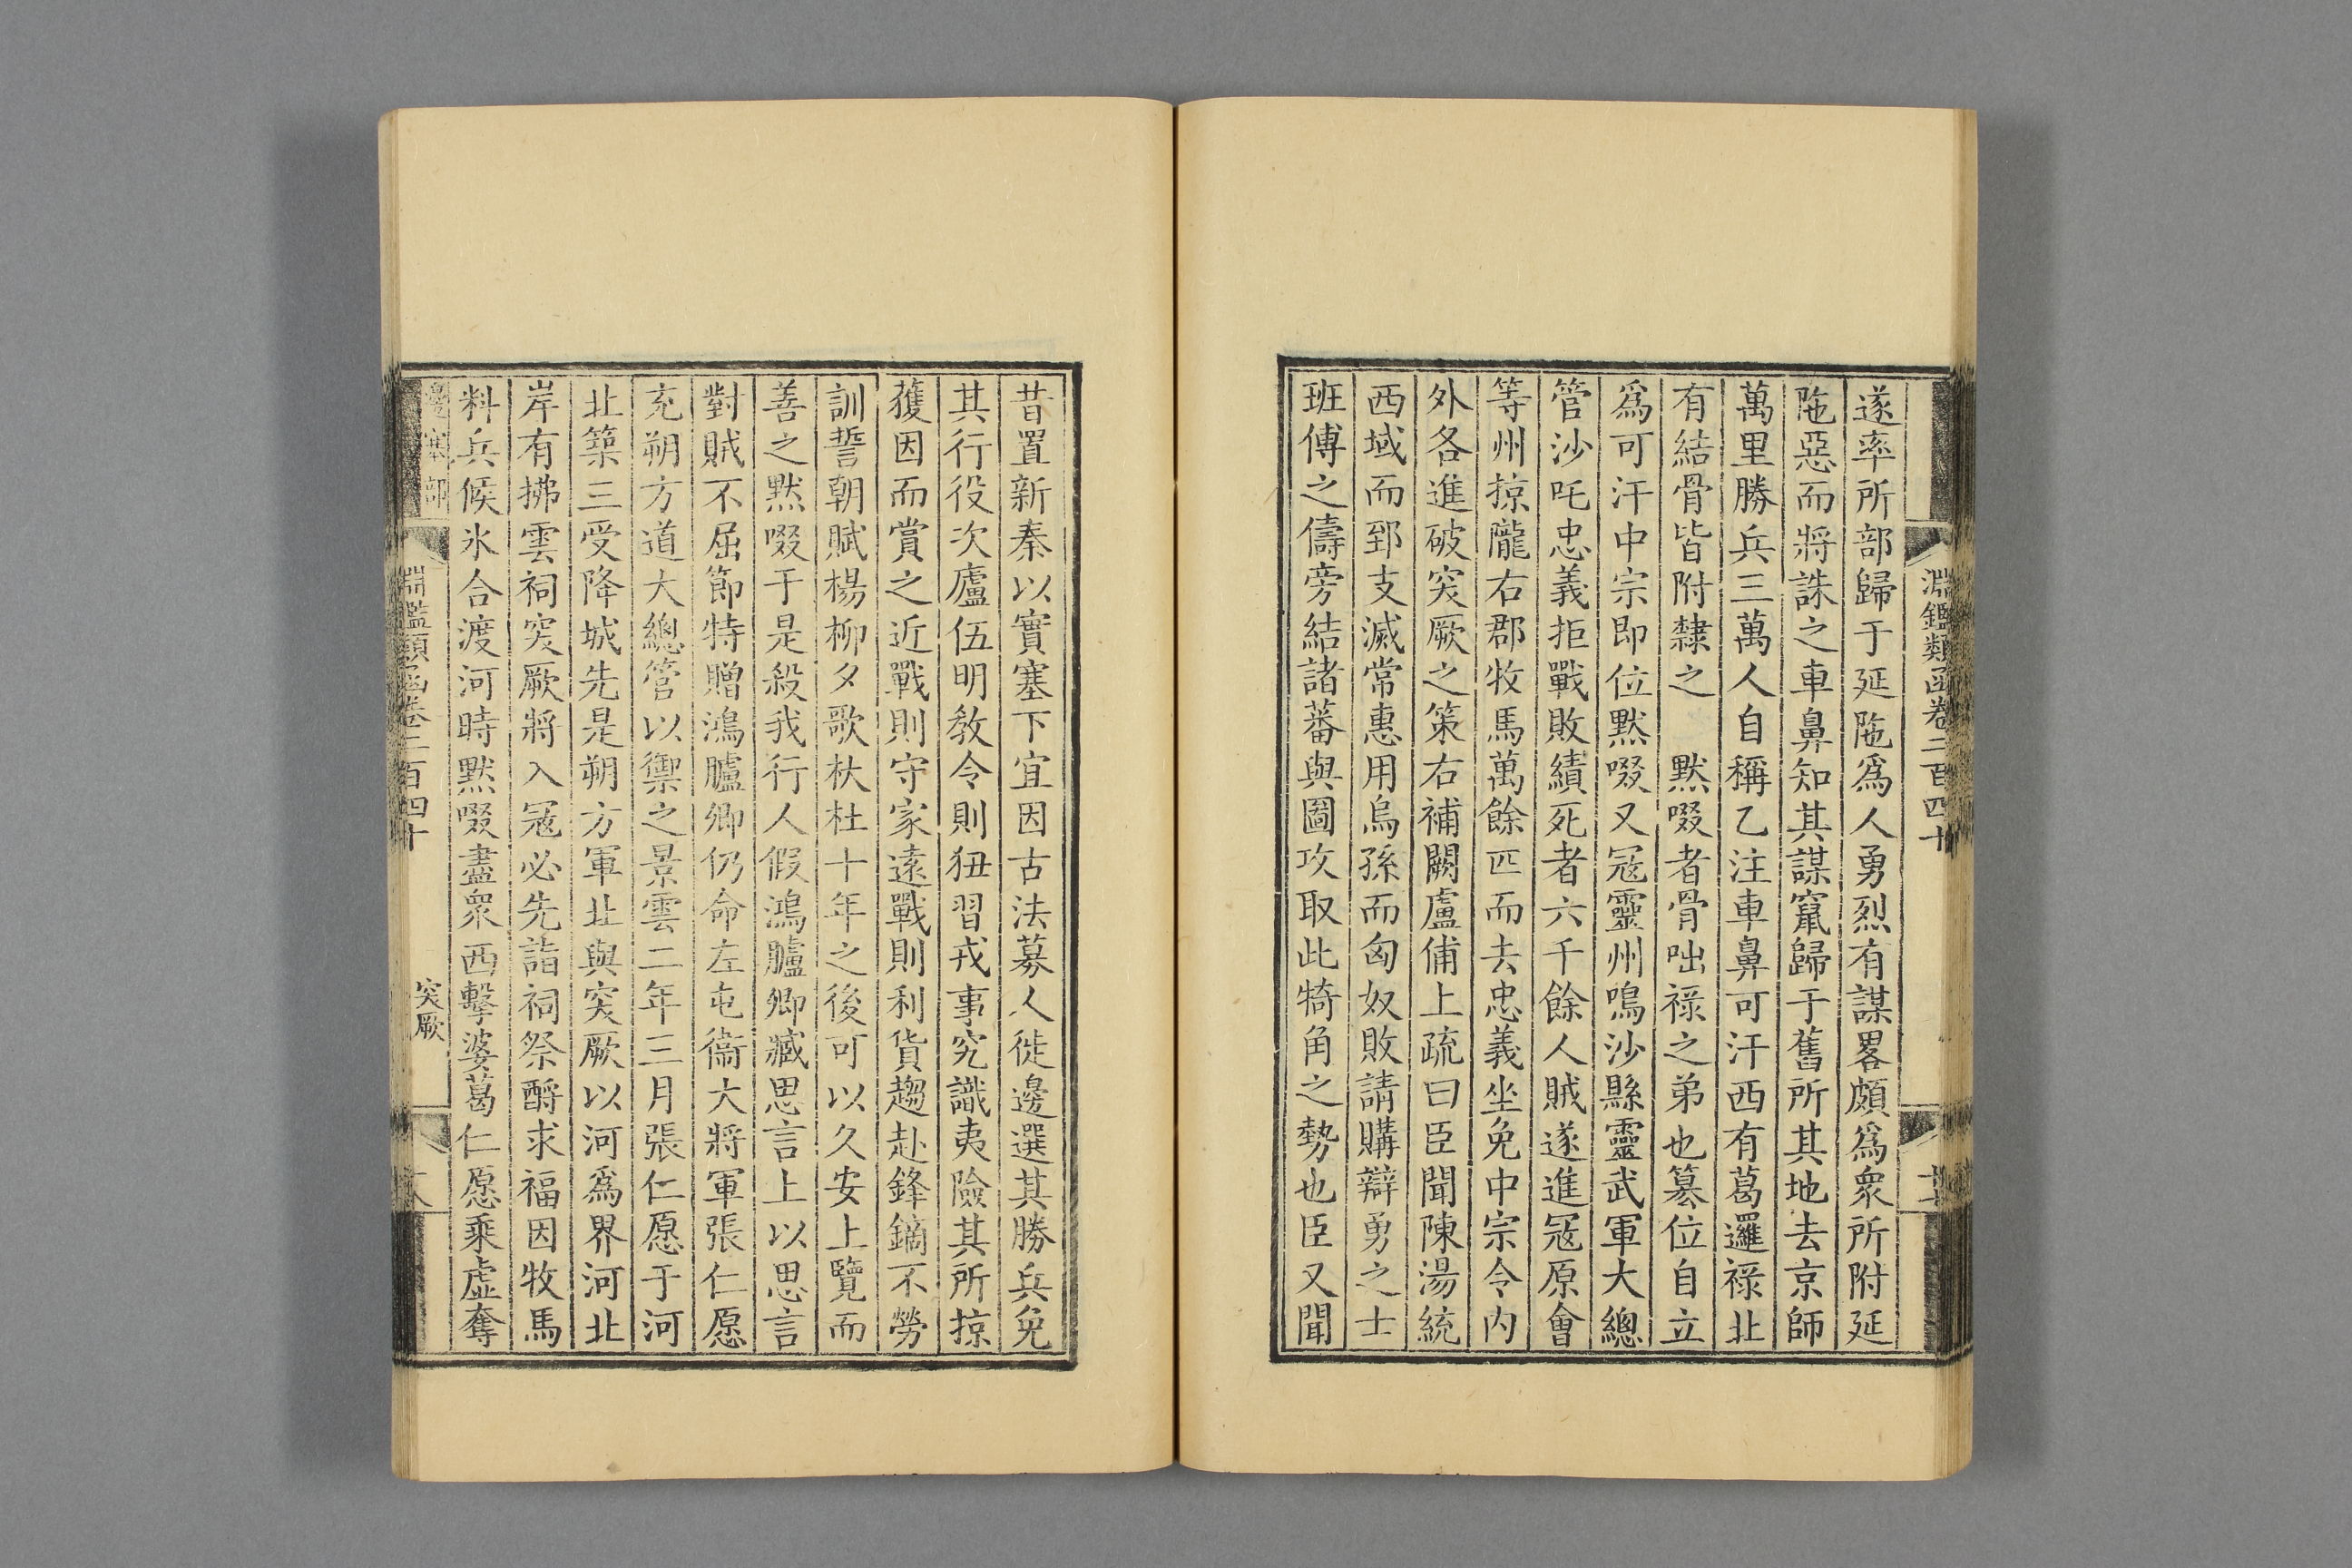 淵鑑類函卷二百四十
遂率所部歸于延陁爲人勇烈有謀畧頗爲衆所附延
陁惡而將誅之車鼻知其謀竄歸于舊所其地去京師
萬里勝兵三萬人自稱乙注車鼻可汗西有葛邏祿北
有結骨皆附隸之 黙啜者骨咄祿之弟也簒位自立
爲可汗中宗即位黙啜又冦靈州鳴沙縣靈武軍大總
管沙吒忠義拒戰敗績死者六千餘人賊遂進冦原會
等州掠隴右郡牧馬萬餘匹而去忠義坐免中宗令内
外各進破突厥之策右補闕盧俌上疏曰臣聞陳湯統
西域而郅支滅常惠用烏孫而匈奴敗請購辯勇之士
班傅之儔旁結諸蕃與圖攻取此犄角之勢也臣又聞
昔置新秦以實塞下宜因古法募人徙邊選其勝兵免
其行役次廬伍明教令則狃習戎事究識夷險其所掠
獲因而賞之近戰則守家遠戰則利貨趨赴鋒鏑不勞
訓誓朝賦楊柳夕歌杕杜十年之後可以久安上覽而
善之黙啜于是殺我行人假鴻臚卿臧思言上以思言
對賊不屈節特贈鴻臚卿仍命左屯衞大將軍張仁愿
充朔方道大總管以禦之景雲二年三月張仁愿于河
北築三受降城先是朔方軍北與突厥以河爲界河北
岸有拂雲祠突厥將入冦必先詣祠祭酹求福因牧馬
料兵候氷合渡河時黙啜盡衆西擊婆葛仁愿乘虛奪
邊塞部
淵鑑類函卷二百四十
突厥